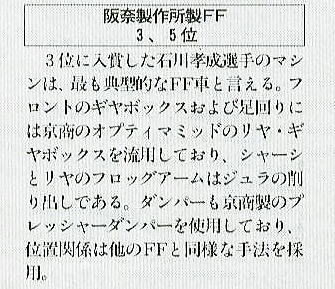 阪奈製作所製FF
3、5位
3位に入賞した石川孝成選手のマシ
ンは、最も典型的なFF車と言える。フ
ロントのギヤボックスおよび足回りに
は京商のオプティマミッドのリヤ・ギ
ヤボックスを流用しており、シャーシ
とリヤのフロッグアームはジュラの削
り出しである。ダンパーも京商製のプ
レッシャーダンパーを使用しており、
位置関係は他のFFと同様な手法を採
用。